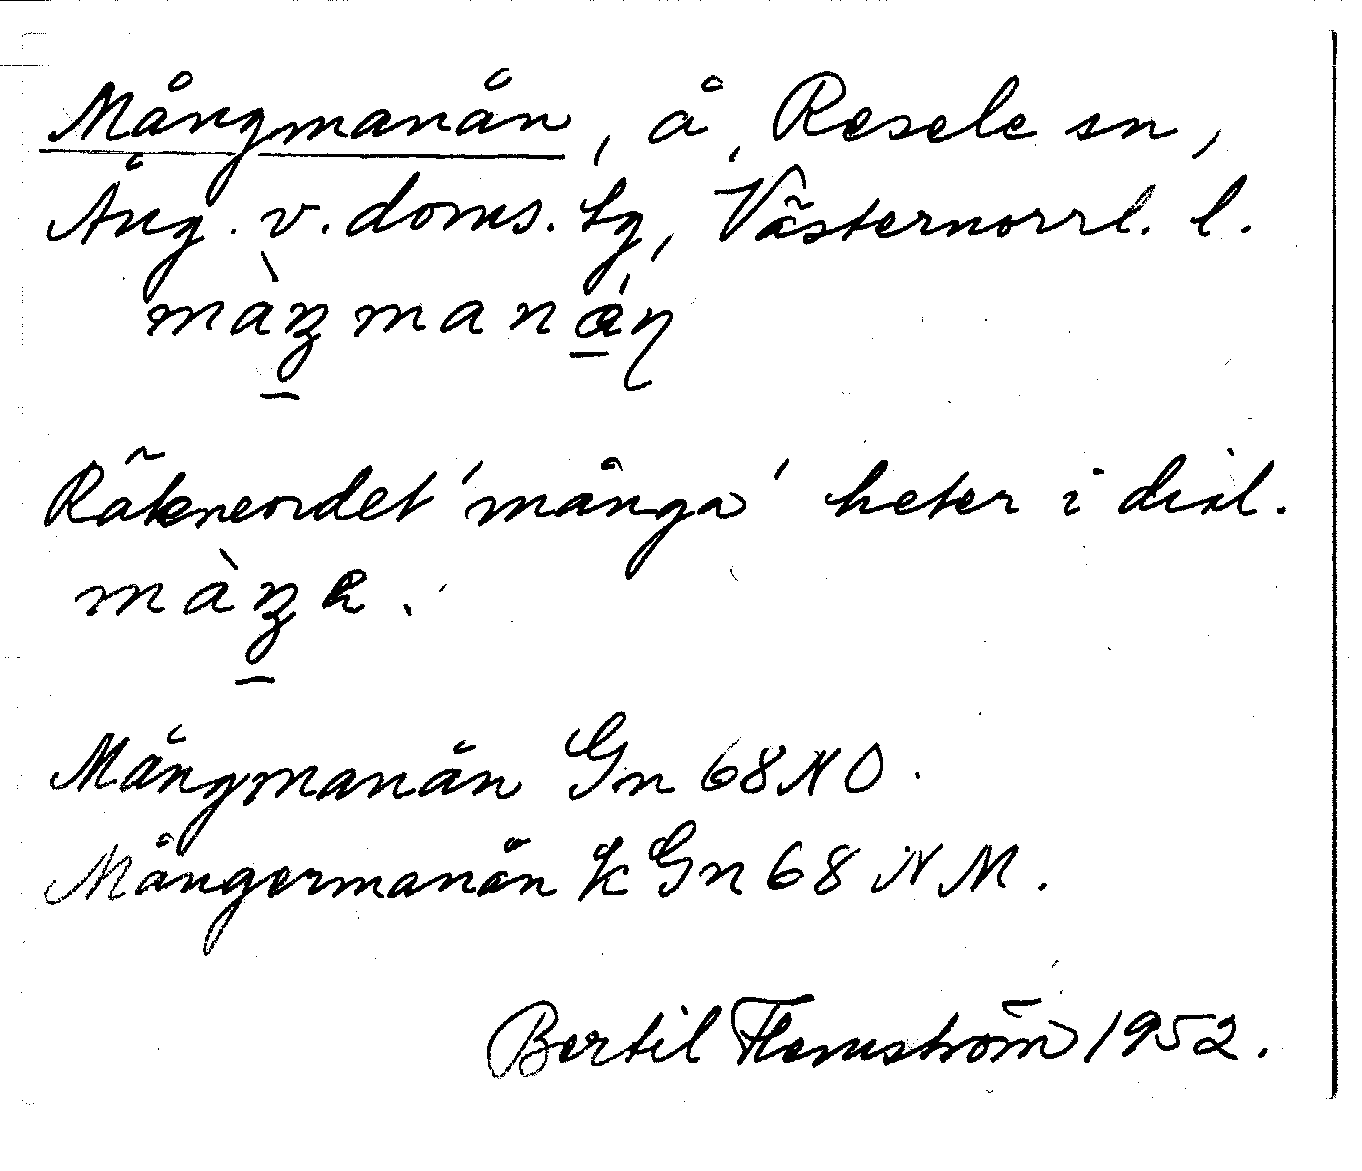 Mångmanån, å, Resele sn,
Ång. v. doms. tg, Västernorrl. l.
Räkneordet 'många' heter i dial.
Mångmanån Gn 68 NO.
Mångermanån k Gn 68 NM.
Bertil Flemström 1952.